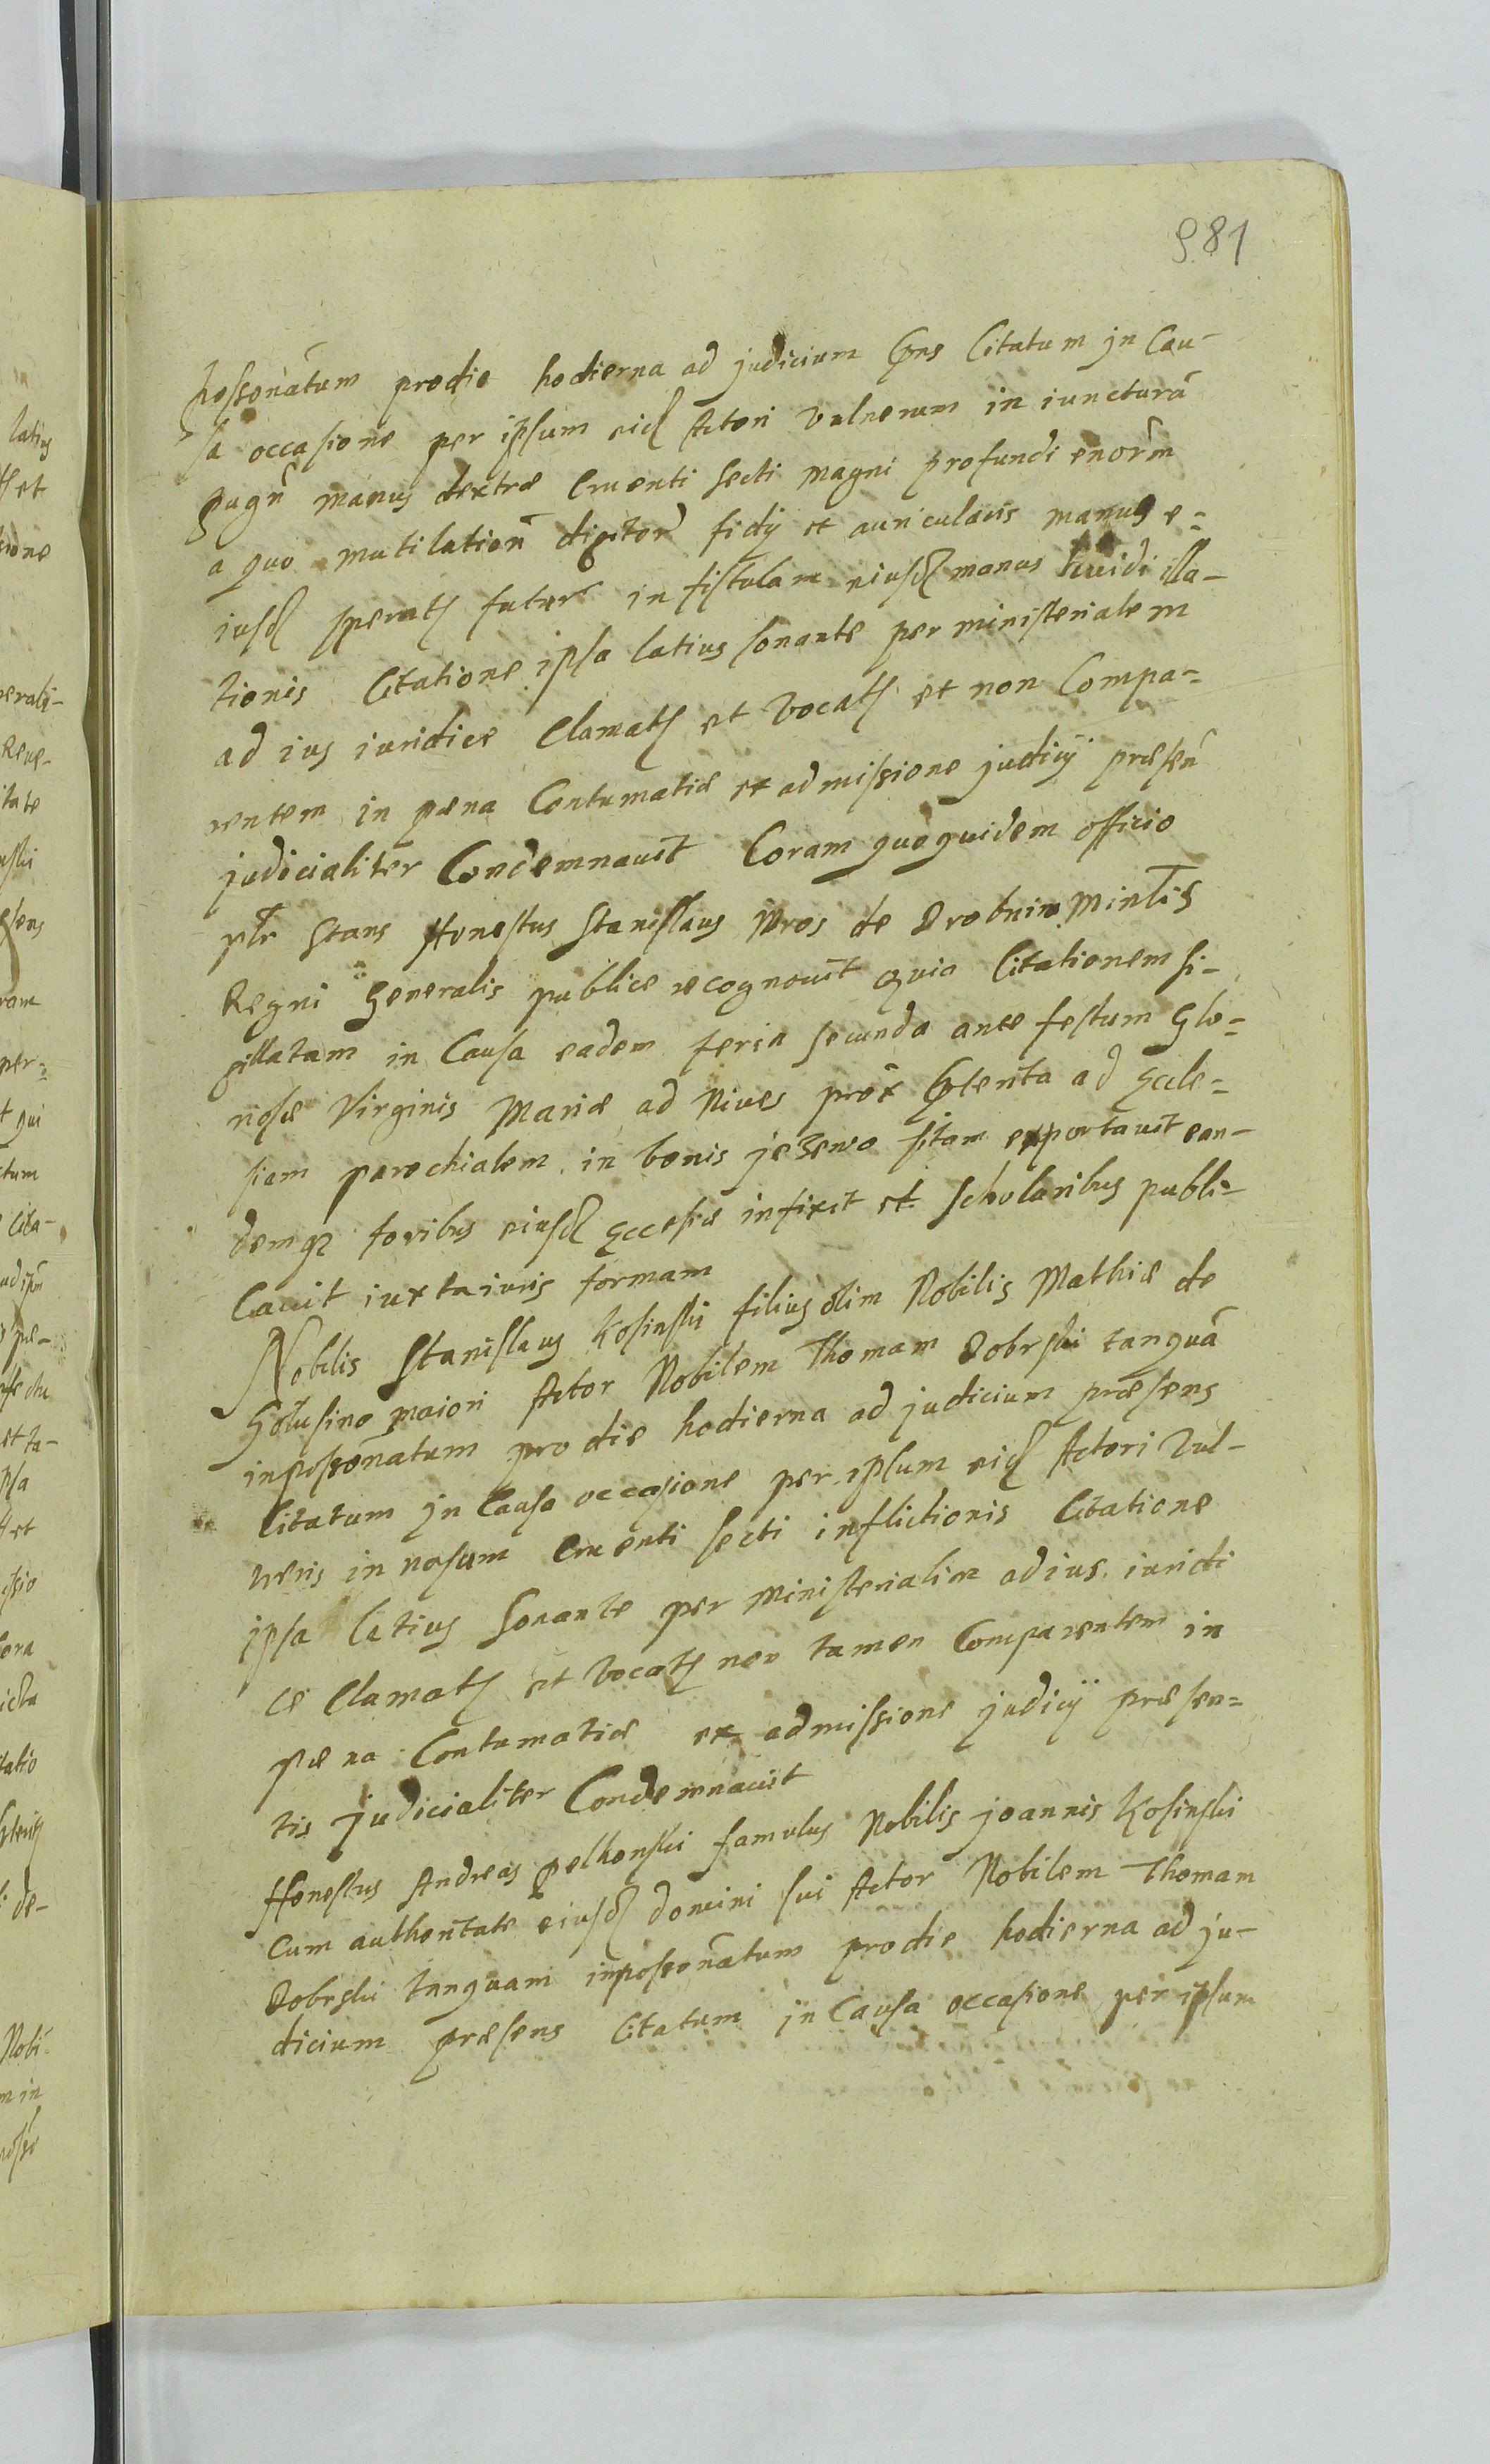 981
possonatum pro die hodierna ad judicium pns Citatum jn Cau-
sa occasione per ipsum eid Actori vulnerum in iuncturā
pugn̄ manus dextræ Cruenti secti magni profundi enorm̄
a quo mutilation̄ digitor̄ fidij et auricularis manus e=
iusd sperat futur̄ in fistulam eiusd manus liuidi illa-
tionis Citatione ipsa latius sonante per ministerialem
ad ius iuridice Clamat et vocat et non Compa=
rentem in pœna Contumatiæ ex admissione judicij præsen̄
judicialiter Condemnauit Coram quoquidem officio
pltr Stans Honestus Stanislaus Mros de Drobnin Minlis
Regni Generalis publice recognouit quia Citationem si-
gillatam in Causa eadem feria secunda ante festum Glo=
riosæ Virginis Mariæ ad Niues prox pterita ad Eccle=
siam parochialem in bonis jezewo sitam exportauit ean-
demq foribus eiusd Eccesiæ infixit et scholaribus publi-
Cauit iuxta iuris formam
Nobilis Stanislaus Kosinski filius olim Nobilis Mathiæ de
Golusino maiori Actor Nobilem Thomam Dobrski tanquā
inpossonatum pro die hodierna ad judicium præsens
Citatum jn Causa occasione per ipsum eid Actori vul-
neris in nasum Cruenti secti inflictionis Citatione
ipsa latius sonante per ministerialem ad ius iuridi
ce Clamat et vocat non tamen Comparentem in
pœna Contumatiæ ex admissione judicij præsen=
tis judicialiter Condemnauit
Honestus Andreas pelkonski famulus Nobilis joannis Kosinski
Cum authoritate eiusd domini sui Actor Nobilem Thomam
Dobrski tanquam inpossonatum pro die hodierna ad ju-
dicium præsens Citatum jn Causa occasione per ipsum